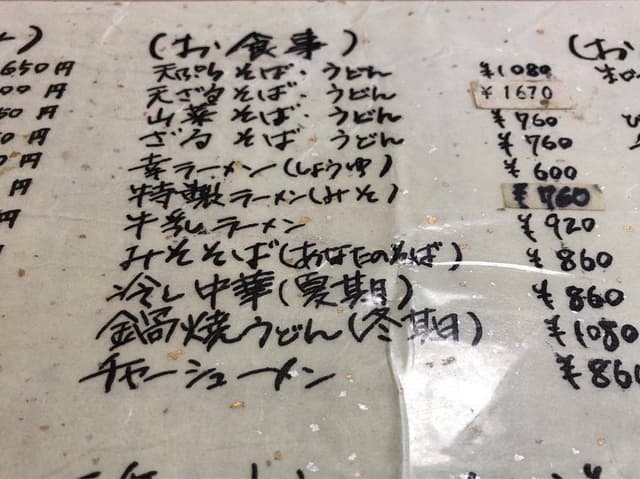 (お食事)
天ぷらそば.うどん ¥1080
天ざるそば.うどん ¥1670
山菜そば.うどん ¥760
ざるそば.うどん ¥760
幸ラーメン(しょうゆ) ¥600
特製ラーメン(みそ) ¥760
牛乳ラーメン ¥920
みそそば(あなたのそば) ¥860
冷し中華(夏期) ¥860
鍋焼うどん(冬期) ¥1080
チャーシューメン ¥860
650円
円
円
円
円
円
円
(お